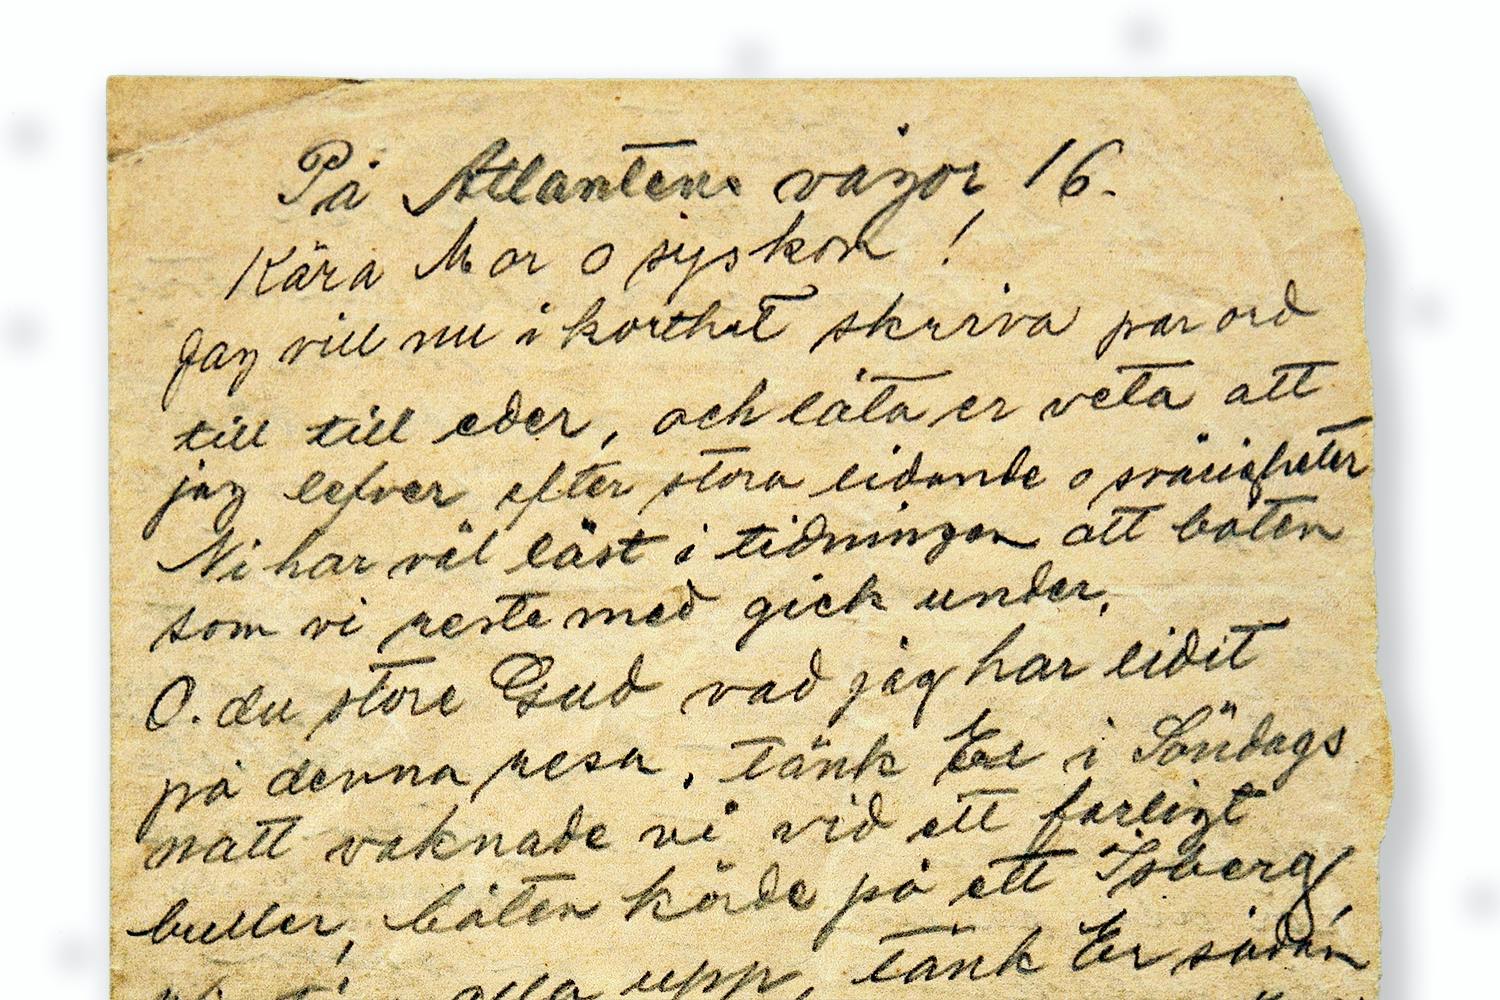 På Atlantens vågor 16.
Kära Mor o syskon!
Jag vill nu i korthet skriva par ord
till till eder, och låta er veta att
jag lefver efter stora lidande o svårigheter
Ni har väl läst i tidningen att båten
som vi reste med gick under.
O. du store Gud vad jag har lidit
på denna resa. tänk Er i Söndags
natt vaknade vi vid ett farligt
buller, båten körde på ett Isberg,
alla upp, tänk Er sådan